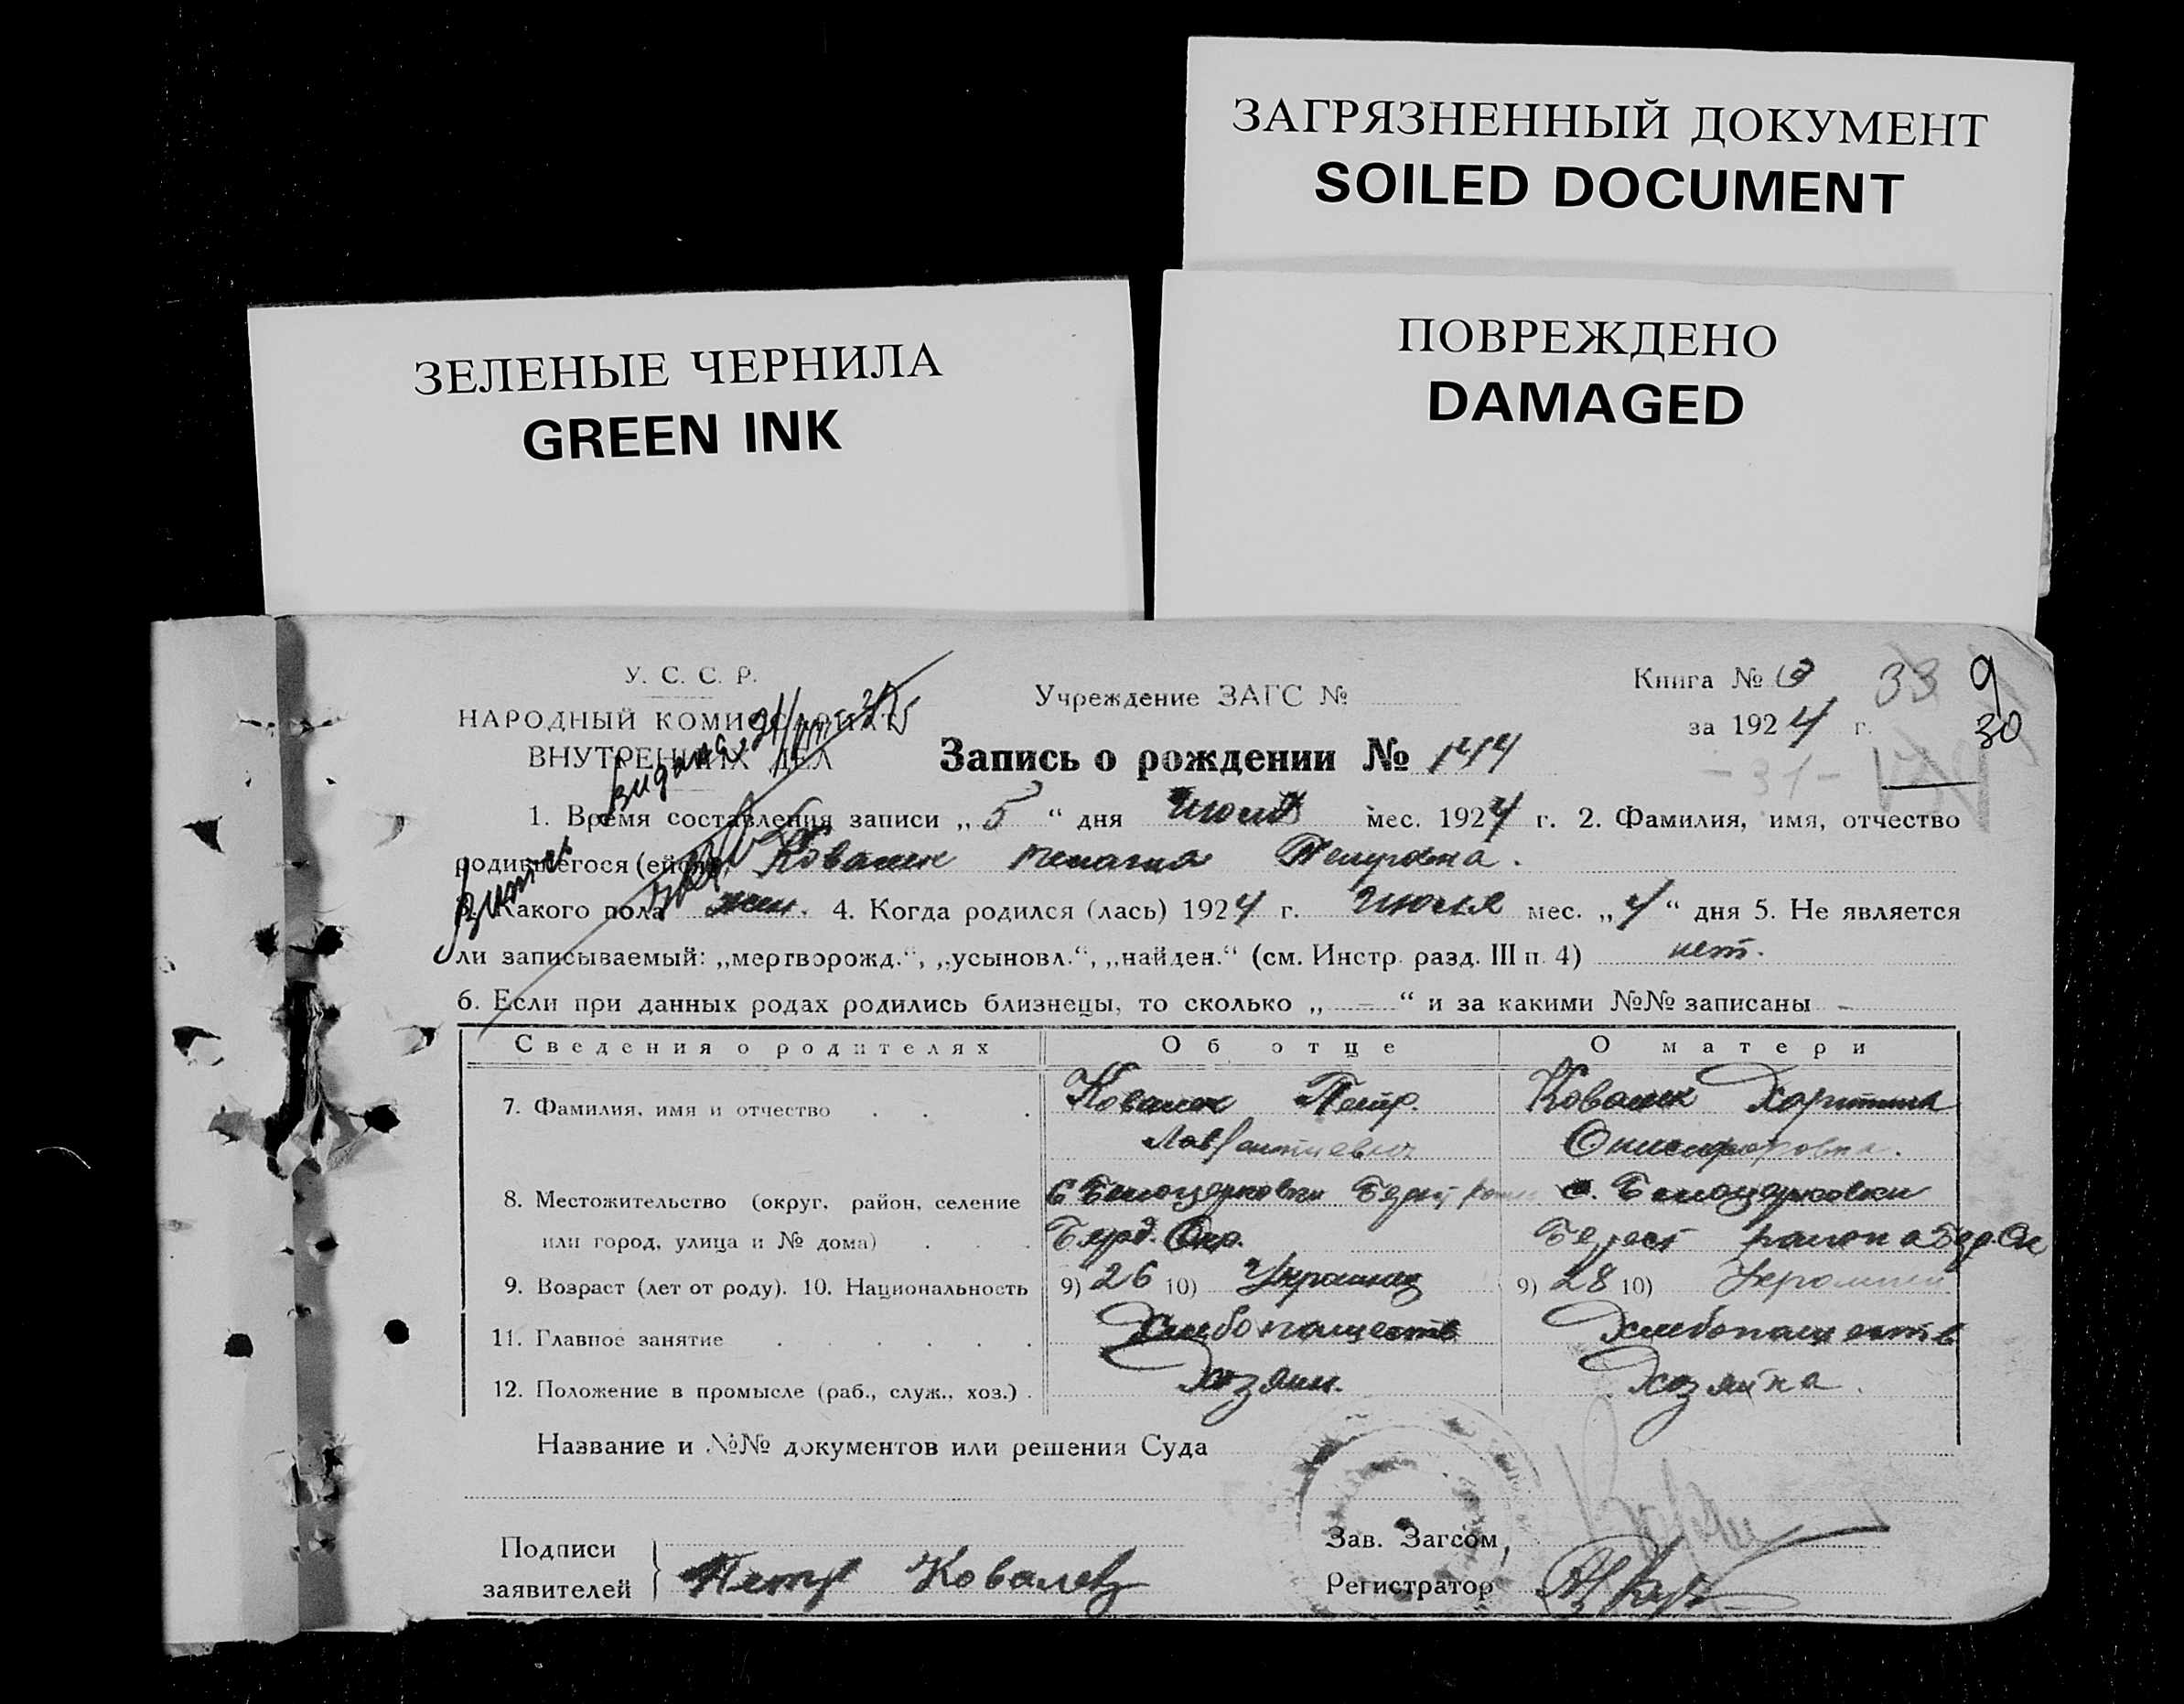 ЗАГРЯЗНЕННЫЙ ДОКУМЕНТ
SOILED DOCUMENT
ЗЕЛЕНЫЕ ЧЕРНИЛА
GREEN INK
ПОВРЕЖДЕНО
DAMAGED
У. С. С. Р.
НАРОДНЫЙ КОМИССАРИАТ
ВНУТРЕННИХ ДЕЛ
Учреждение ЗАГС №
Книга № 33 9
за 1924 г. 30
- 31 -
Запись о рождении № 144
1. Время составления записи „ 5 “ дня Июля мес. 1924 г. 2. Фамилия, имя, отчество
родившегося (ейся) Ковалек Петровна.
3. Какого пола жен. 4. Когда родился (лась) 1924 г. Июля мес. „4“ дня 5. Не является
ли записываемый: „мертворожд.“, „усыновл.“, „найден.“ (см. Инстр. разд. III п. 4) нет.
6. Если при данных родах родились близнецы, то сколько „ – “ и за какими №№ записаны –
Сведения о родителях Об отце О матери
7. Фамилия, имя и отчество Ковалек Петр. Ковалек Харитина
Лаврентиевич Онисифоровна.
8. Местожительство (округ, район, селение С Белоцерковки с. Белоцерковки
или город, улица и № дома) Берд. Окр. Берест района Бер. Ок
9. Возраст (лет от роду). 10. Национальность 9) 26 10) Украинец 9) 28 10)
11. Главное занятие Хлебопашеств Хлебопашеств
12. Положение в промысле (раб., служ., хоз.) Хозяин. Хозяйка.
Название и №№ документов или решения Суда
Подписи заявителей Петр
Зав. Загсом,
Регистратор